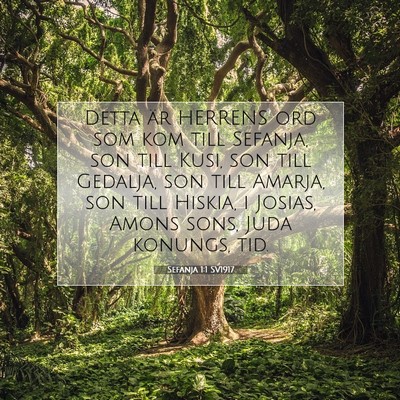 Detta är HERRENS ord
som kom till Sefanja,
son till Kusi, son till
Gedalja, son till Amarja,
son till Hiskia, i Josias,
Amons sons, Juda
konungs, tid
Sefanja 1:1 SV1917